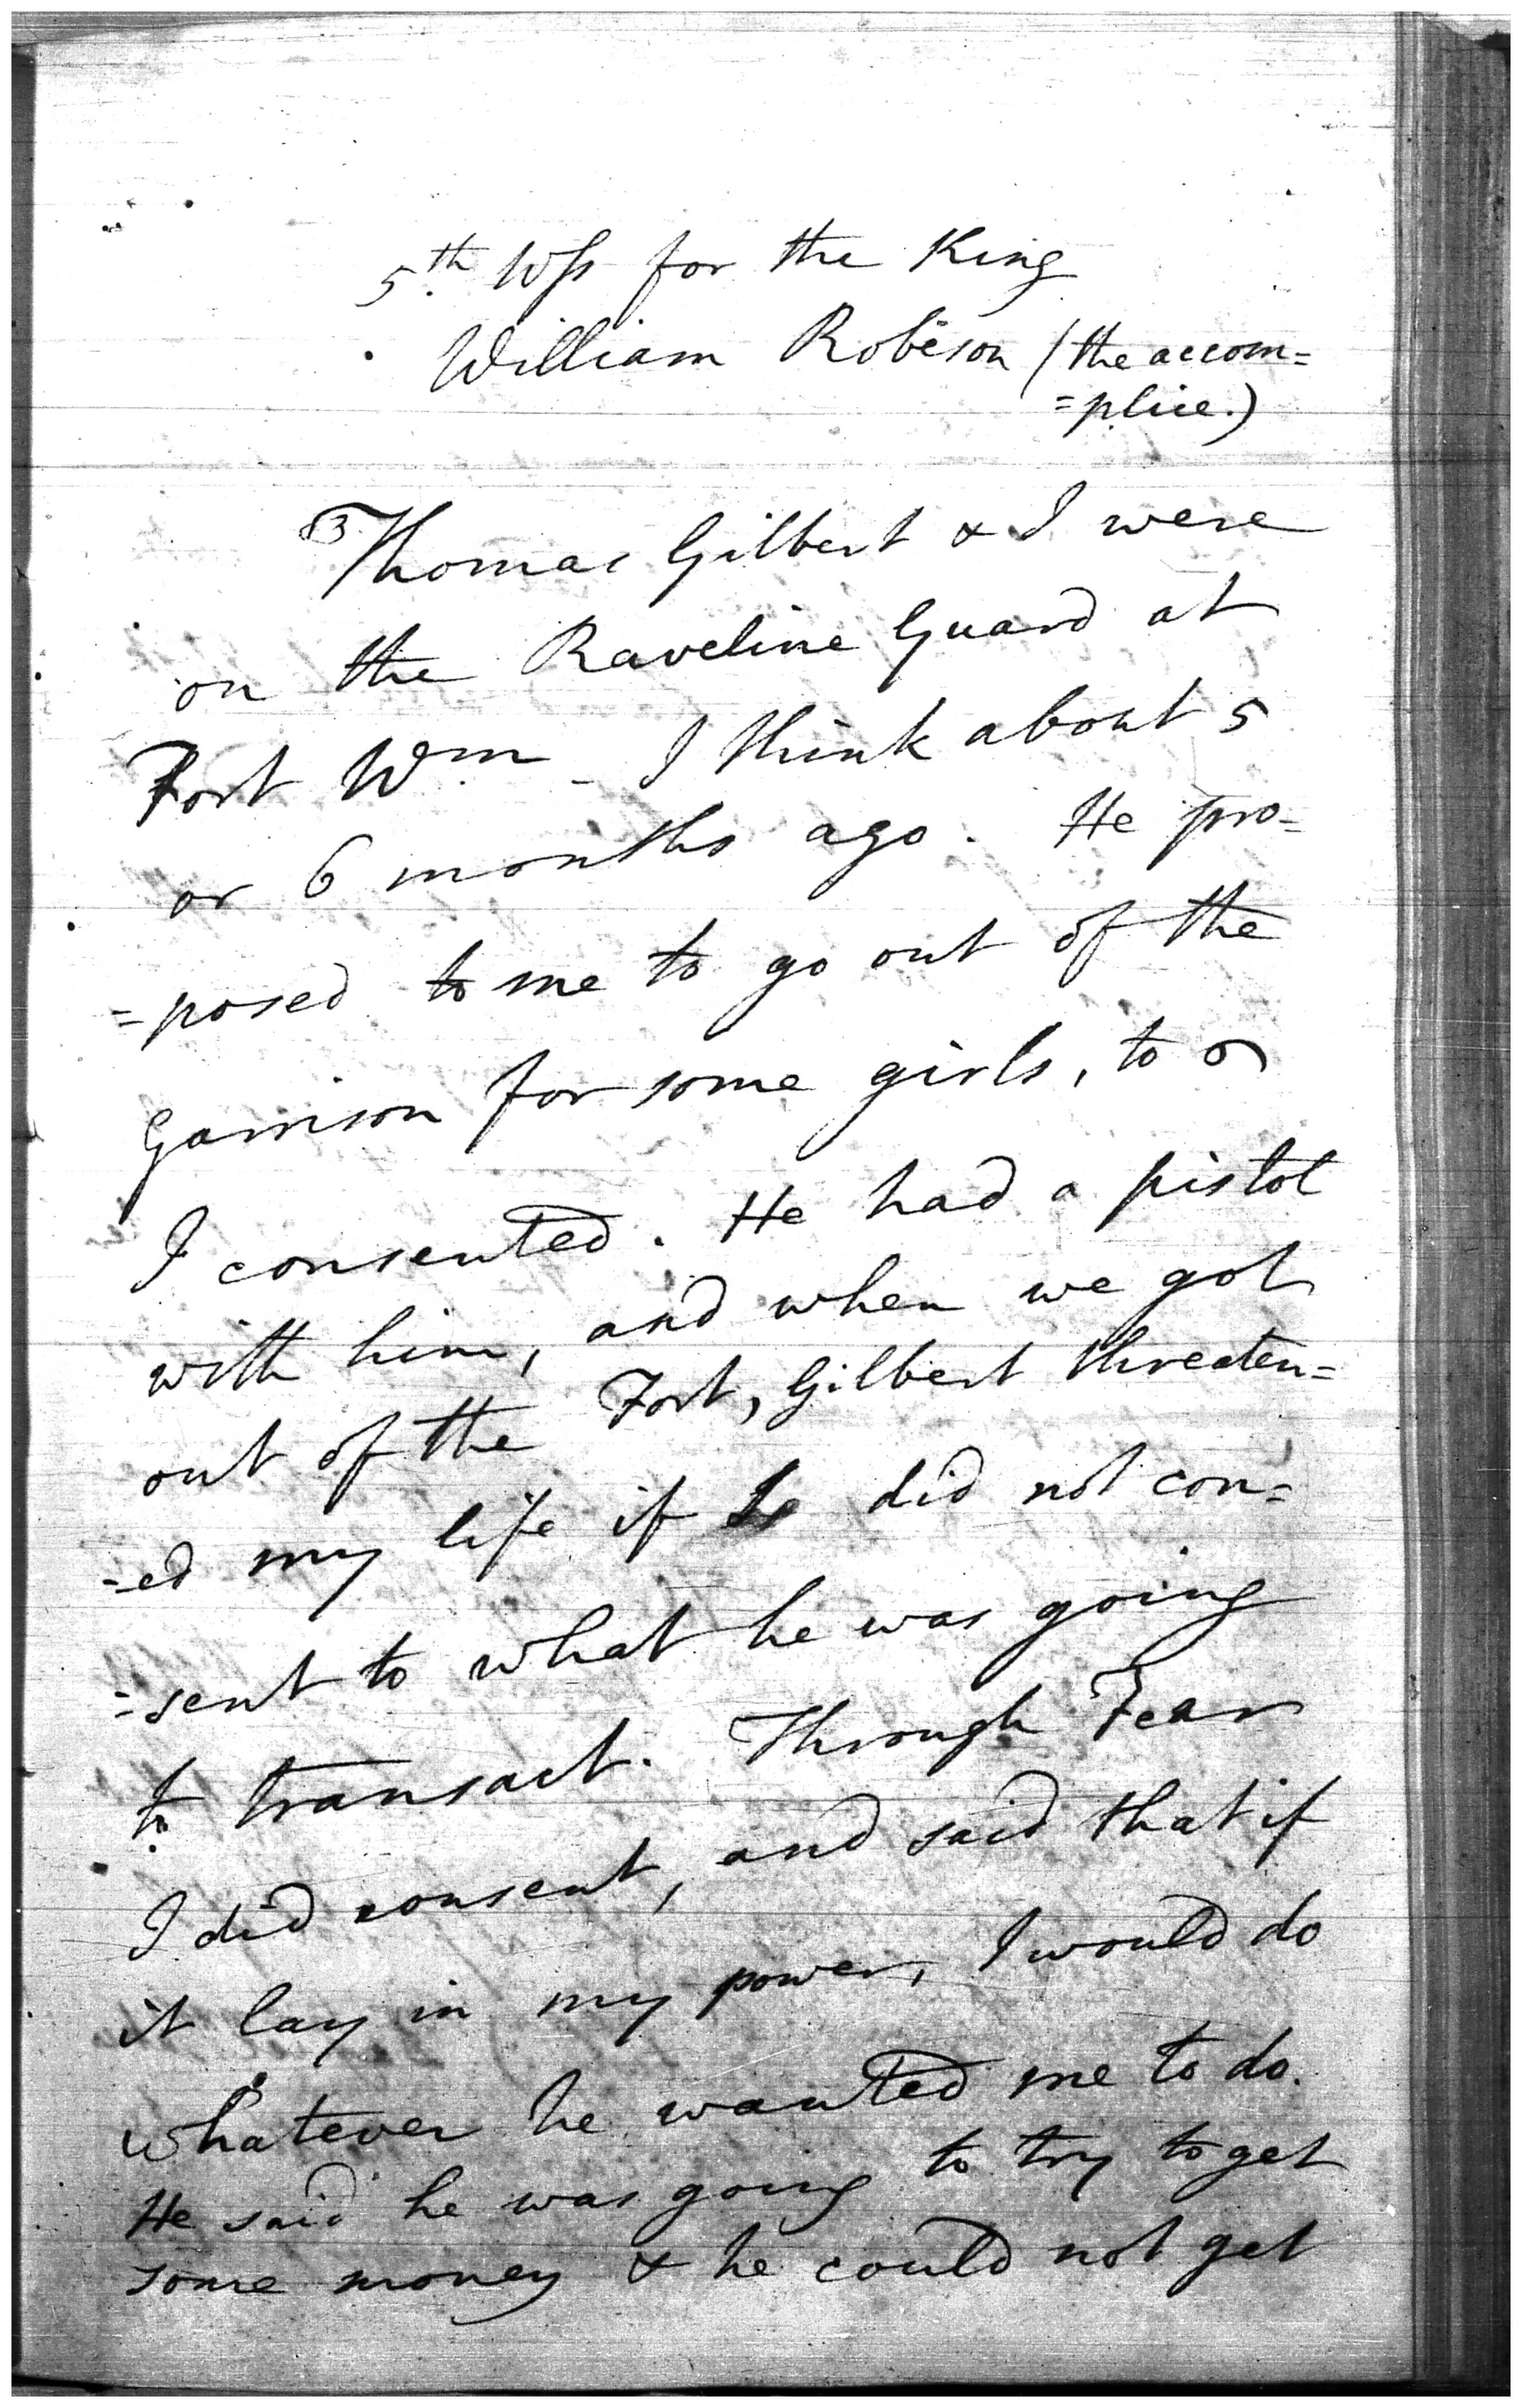 5th Wss for the King
William Robison (the accom=
=plice.)
Thomas Gilbert & I were
on the Raveline Guard at
Fort Wm - I think about 5
or 6 months ago. He pro=
=posed to me to go out of the
Garrison for some girls, to
I consented. He had a pistol
with him, and when we got
out of the Fort, Gilbert threaten=
-ed my life if I did not con=
=sent to what he was going
to transact. Through Fear
I did consent, and said that if
it lay in my power, I would do
whatever he wanted me to do.
He said he was going to try to get
some money & he could not get